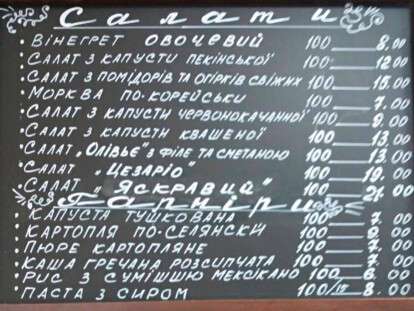 Салати
• ВІНЕГРЕТ ОВОЧЕВИЙ 100 8.00
• САЛАТ З КАПУСТИ ПЕКІНСЬКОЇ 100 12.00
• САЛАТ З ПОМІДОРІВ ТА ОГІРКІВ СВІЖИХ 100 15.00
• МОРКВА ПО-КОРЕЙСЬКИ 100 7.00
• САЛАТ З КАПУСТИ ЧЕРВОНОКАЧАННОЇ 100 9.00
• САЛАТ З КАПУСТИ КВАШЕНОЇ 100 13.00
• САЛАТ „ОЛІВЬЄ" З ФІЛЕ ТА СМЕТАНОЮ 100 13.00
• САЛАТ „ЦЕЗАРІО" 100 19.00
• САЛАТ „ЯСКРАВИЙ" 100 21.00
Гарніри
• КАПУСТА ТУШКОВАНА 100 7.00
• КАРТОПЛЯ ПО-СЕЛЯНСКИ 100 9.00
• ПЮРЕ КАРТОПЛЯНЕ 100 7.00
• КАША ГРЕЧАНА РОЗСИПЧАТА 100 7.00
• РИС З СУМІШШЮ МЕКСІКАНО 100 6.00
• ПАСТА З СИРОМ 100/ 8.00